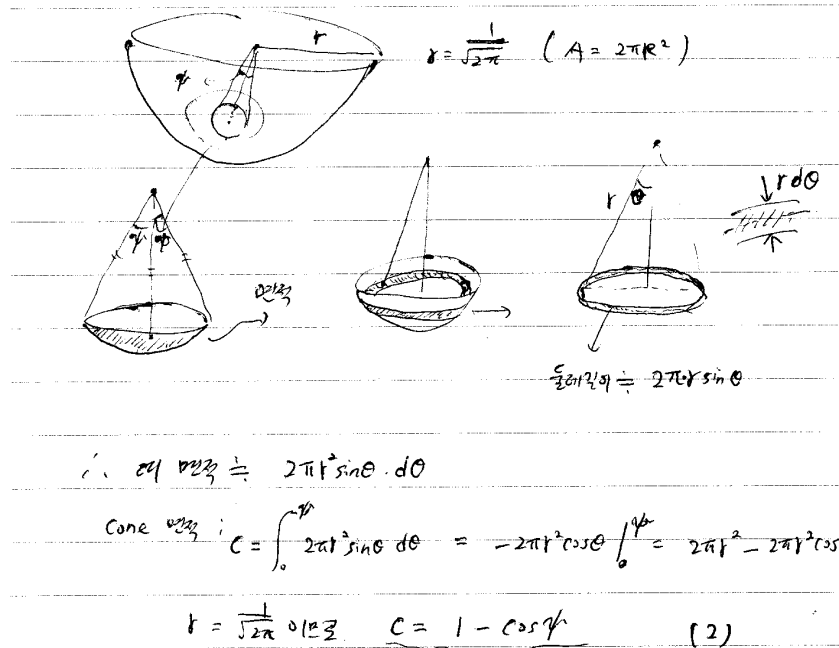 r
r = 1/√2π ( A = 2πR² )
ψ
ψ ψ
면적
r θ
r dθ
둘레길이 ≒ 2π·r sinθ
∴ 띠 면적 ≒ 2πr² sinθ · dθ
Cone 면적 : C = ∫₀^ψ 2πr² sinθ dθ = -2πr² cosθ |₀^ψ = 2πr² - 2πr² cos
r = 1/√2π 이므로 C = 1 - cosψ (2)